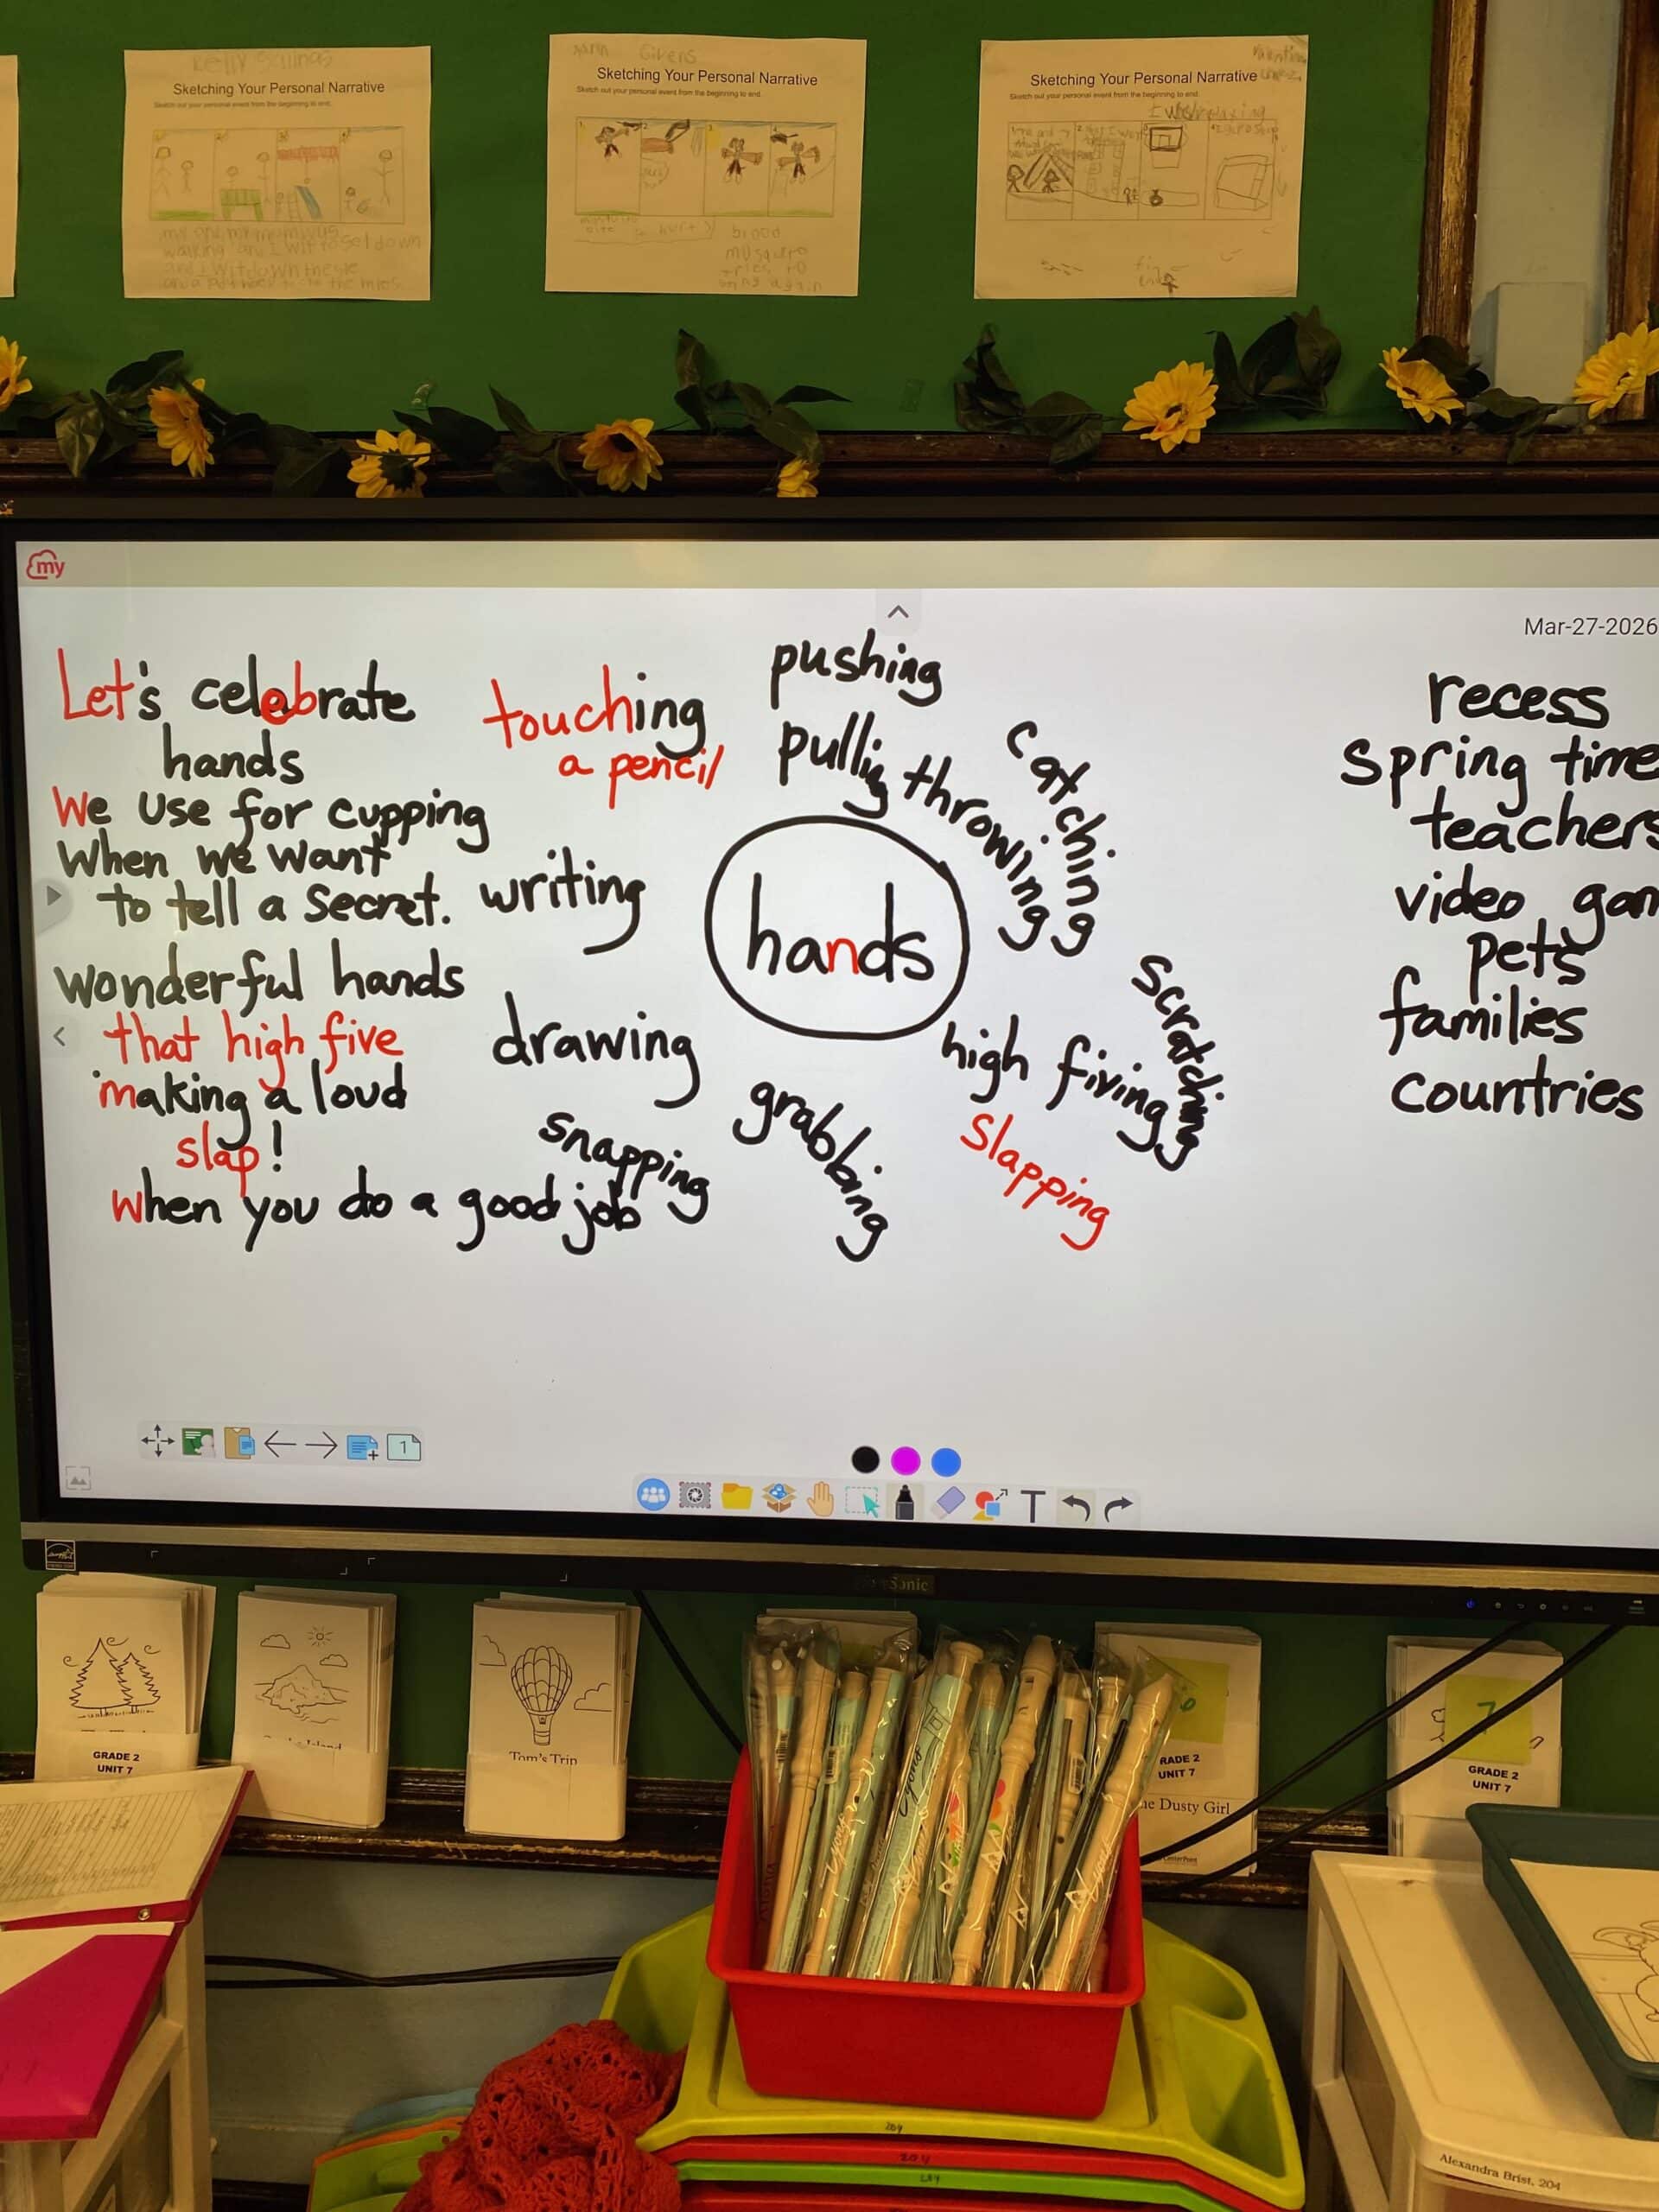 Sketching Your Personal Narrative
Sketch out your personal event from the beginning to end.
walking
Givens
Sketching Your Personal Narrative
Sketch out your personal event from the beginning to end.
blood
mosquito
tries to
again
Sketching Your Personal Narrative
Sketch out your personal event from the beginning to end.
my
Mar-27-2026
Let's celebrate
hands
We use for cupping
When we want
to tell a secret.
wonderful hands
that high five
making a loud
slap!
when you do a good job
touching
a pencil
writing
drawing
snapping
pushing
pullig
throwing
catching
hands
scratching
high fiving
slapping
grabbing
recess
Spring time
teachers
video
pets
families
countries
1
T
GRADE 2
UNIT 7
Tom's Trip
6
UNIT 7
Dusty Girl
CenterPoint
7
GRADE 2
UNIT 7
Lyons
204
204
Alexandra Brist, 204